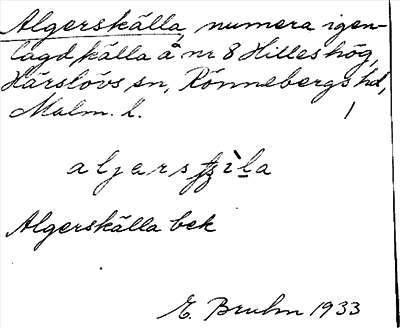 Algerskälla, numera igen-
lagd källa å nr 8 Hilleshög,
Härslövs sn, Rönnebergs hd,
Malm. l. 1
Algerskälla bek
E. Bruhn 1933